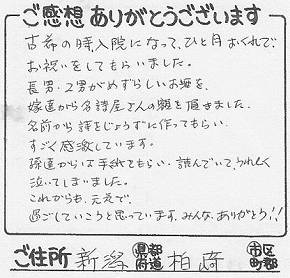 ご感想ありがとうございます
古希の時入院になって、ひと月おくれで、
お祝いをしてもらいました。
長男・2男がめずらしいお酒を、
嫁達から名詩屋さんの額を頂きました。
名前から詩をじょうずに作ってもらい、
すごく感激しています。
孫達からは手紙をもらい、読んでいて、うれしく
泣いてしまいました。
これからも、元気で、
過ごしていこうと思っています。みんな、ありがとう!!
ご住所 新潟 県都府道 柏崎 市区町郡